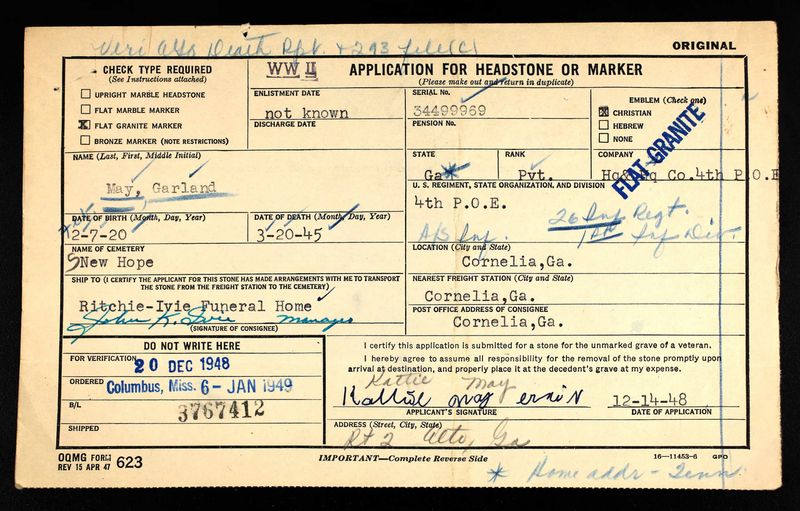 Veri A&S Death Rpt. + 293 file(c)
ORIGINAL
CHECK TYPE REQUIRED
(See Instructions attached)
UPRIGHT MARBLE HEADSTONE
FLAT MARBLE MARKER
X FLAT GRANITE MARKER
BRONZE MARKER (NOTE RESTRICTIONS)
WW II
APPLICATION FOR HEADSTONE OR MARKER
(Please make out and return in duplicate)
ENLISTMENT DATE
not known
DISCHARGE DATE
SERIAL No.
34499969
PENSION No.
EMBLEM (Check one)
X CHRISTIAN
HEBREW
NONE
FLAT GRANITE
NAME (Last, First, Middle Initial)
May, Garland
STATE
Ga*
RANK
Pvt.
COMPANY
Hq&Hq Co.4th P.O.E
U. S. REGIMENT, STATE ORGANIZATION, AND DIVISION
4th P.O.E.
26 Inf Regt.
1st Inf Div.
DATE OF BIRTH (Month, Day, Year)
12-7-20
DATE OF DEATH (Month, Day, Year)
3-20-45
NAME OF CEMETERY
New Hope
LOCATION (City and State)
Cornelia,Ga.
SHIP TO (I CERTIFY THE APPLICANT FOR THIS STONE HAS MADE ARRANGEMENTS WITH ME TO TRANSPORT THE STONE FROM THE FREIGHT STATION TO THE CEMETERY)
Ritchie-Ivie Funeral Home
John K. Ivie Manager
(SIGNATURE OF CONSIGNEE)
NEAREST FREIGHT STATION (City and State)
Cornelia,Ga.
POST OFFICE ADDRESS OF CONSIGNEE
Cornelia,Ga.
DO NOT WRITE HERE
FOR VERIFICATION 20 DEC 1948
ORDERED Columbus, Miss. 6-JAN 1949
B/L 3767412
SHIPPED
I certify this application is submitted for a stone for the unmarked grave of a veteran.
I hereby agree to assume all responsibility for the removal of the stone promptly upon
arrival at destination, and properly place it at the decedent's grave at my expense.
Kattie May
12-14-48
APPLICANT'S SIGNATURE
DATE OF APPLICATION
ADDRESS (Street, City, State)
Rt 2 Alto, Ga
OQMG FORM 623
REV 15 APR 47
IMPORTANT—Complete Reverse Side
16—11453-6 GPO
* Home addr - Tenn.